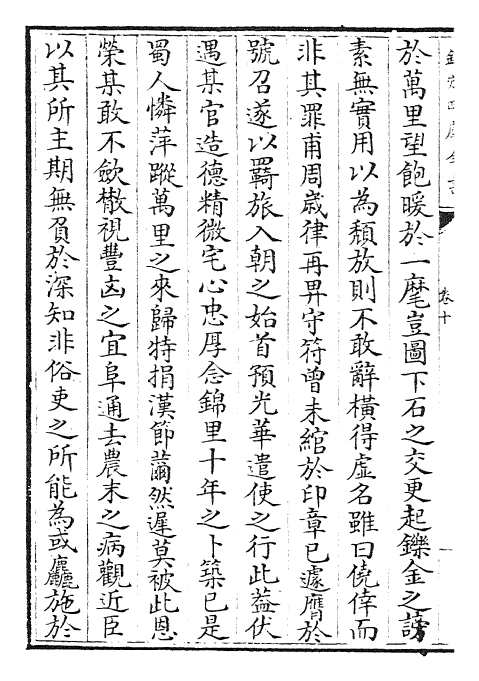 於萬里望飽暖於一麾豈圖下石之交更起鑠金之謗
素無實用以為頹放則不敢辭橫得虛名雖曰僥倖而
非其罪甫周歲律再畀守符曾未綰於印章已遽膺於
號召遂以羇旅入朝之始首預光華遣使之行此葢伏
遇某官造德精微宅心忠厚念錦里十年之卜築已是
蜀人憐萍蹤萬里之來歸特捐漢節薾然遲莫被此恩
榮某敢不歛散視豐凶之宜阜通去農末之病觀近臣
以其所主期無負於深知非俗吏之所能為或麤施於
卷十